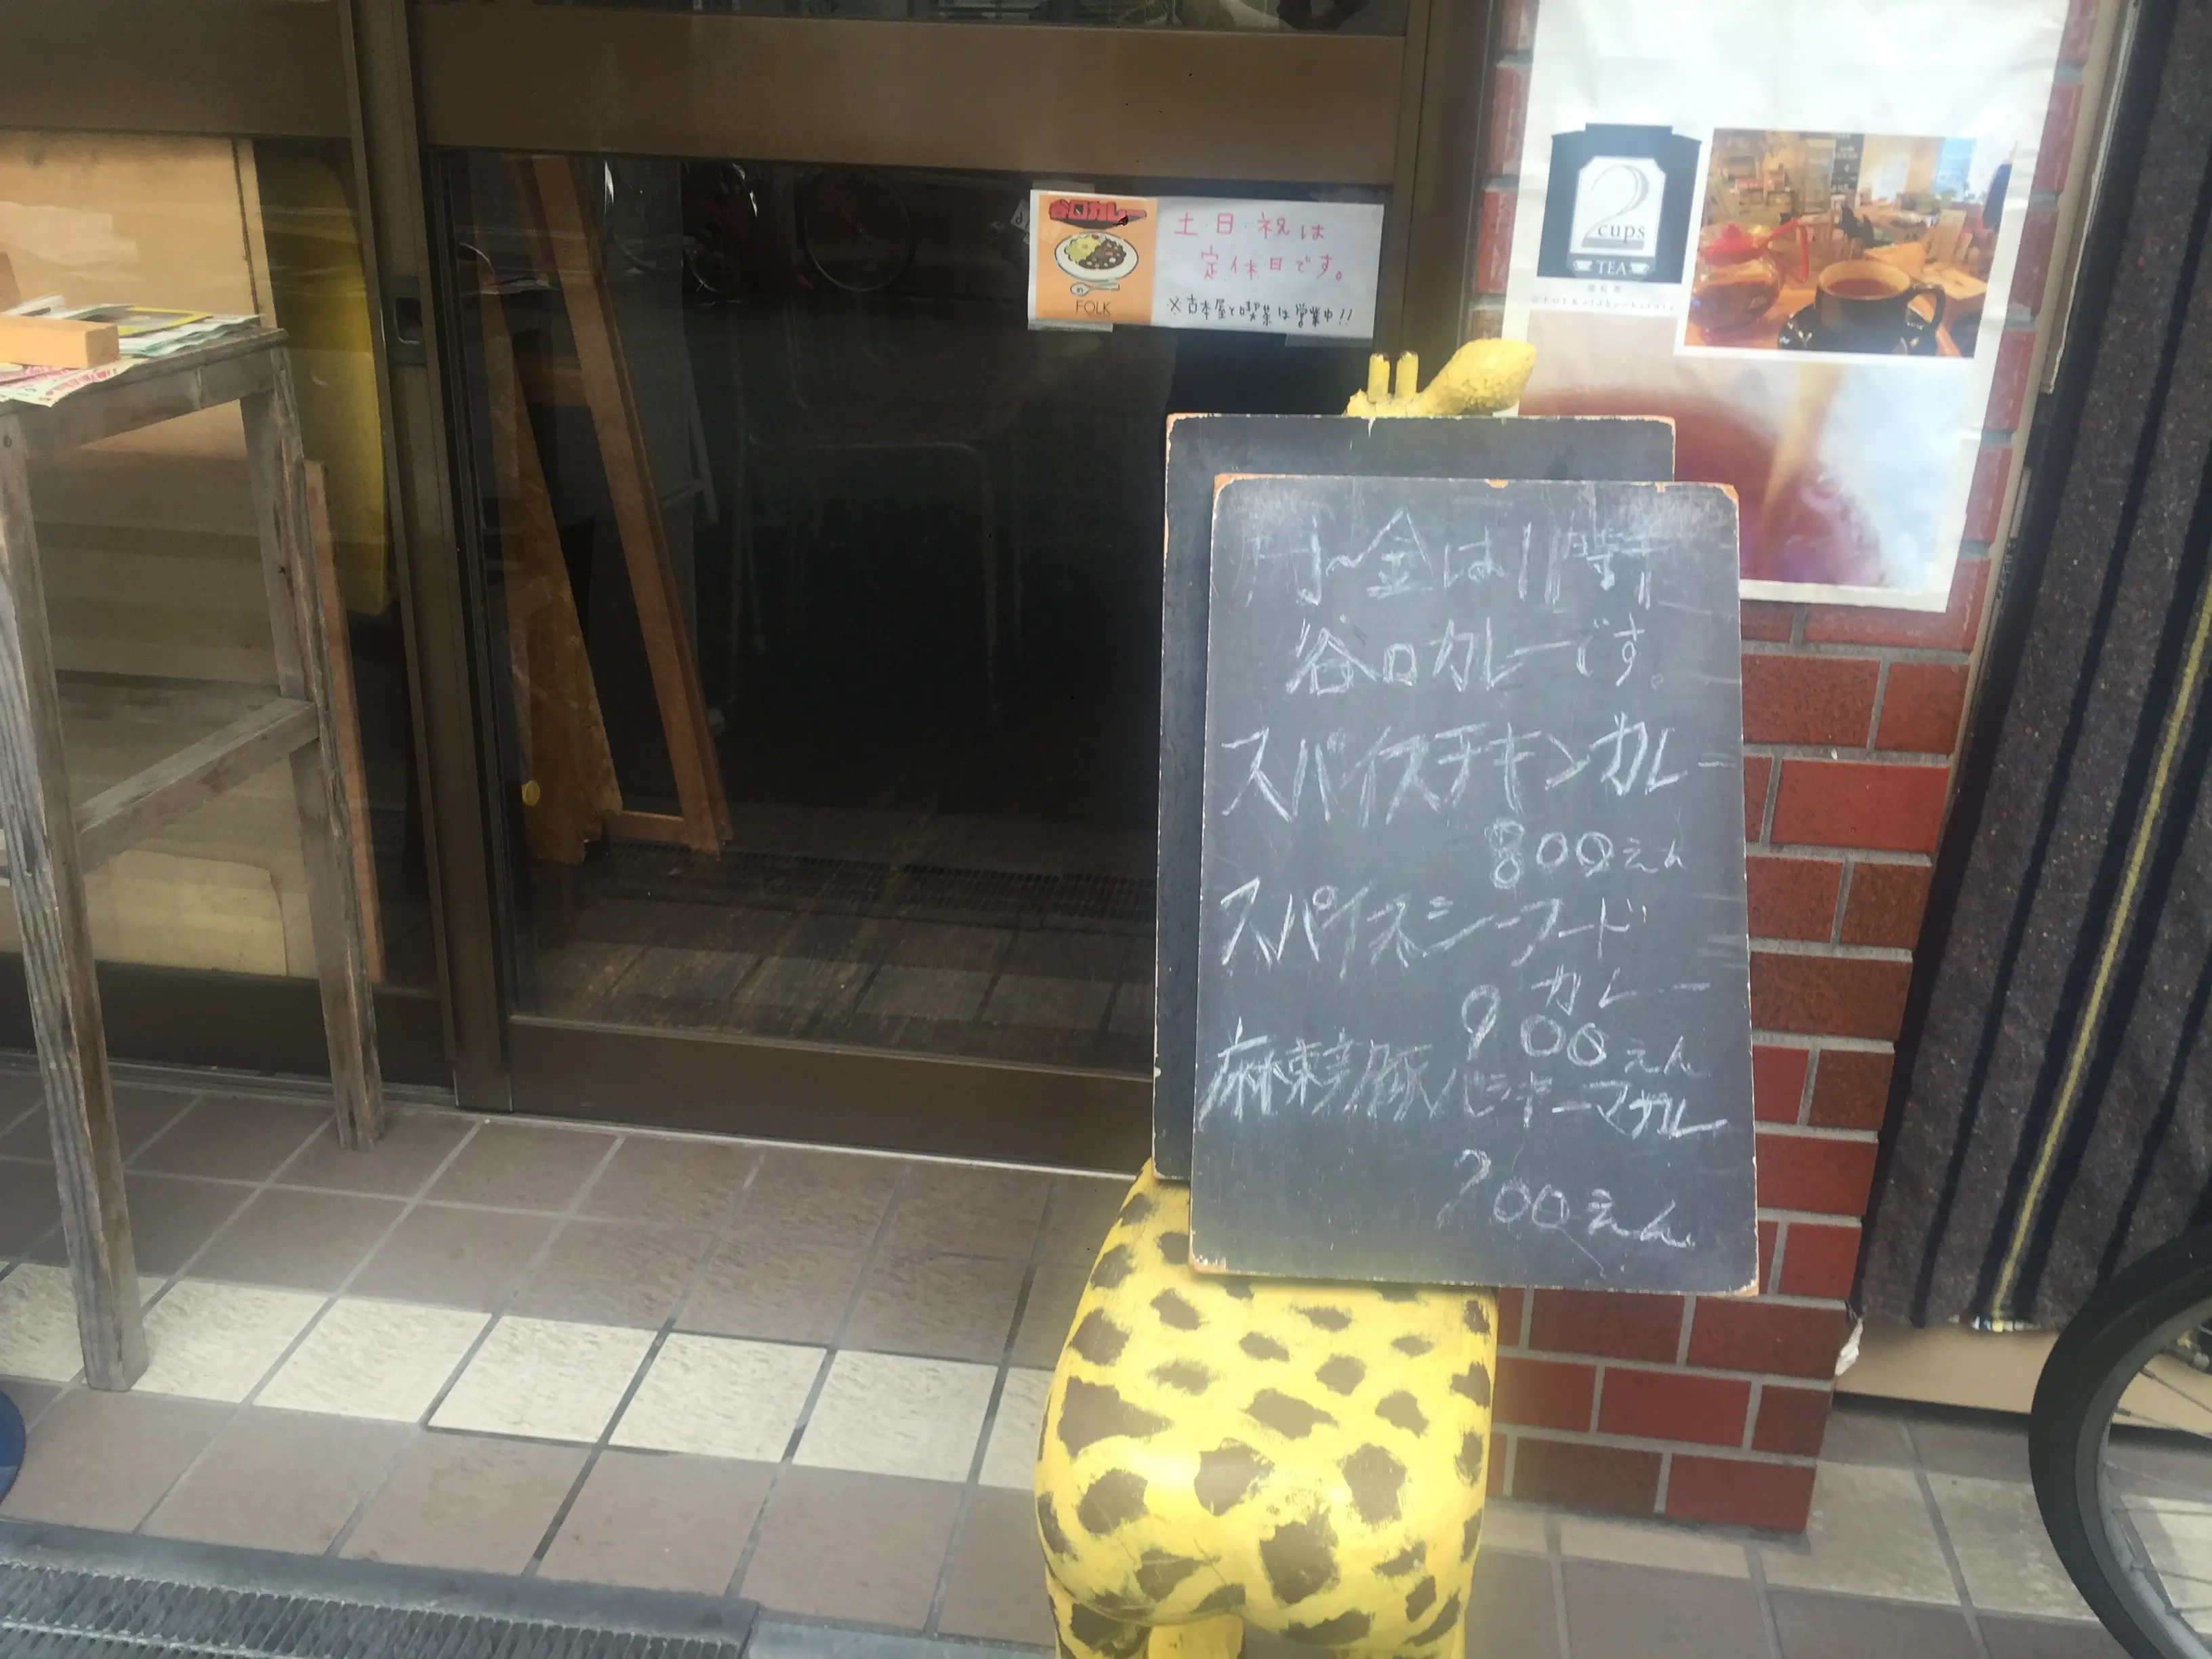 谷口カレー
FOLK
土・日・祝は
定休日です。
※古本屋と喫茶は営業中!!
2
cups
TEA
月〜金は11時
谷口カレーです。
スパイスチキンカレー
800えん
スパイスシーフード
カレー
900えん
麻辣豚キーマカレー
900えん